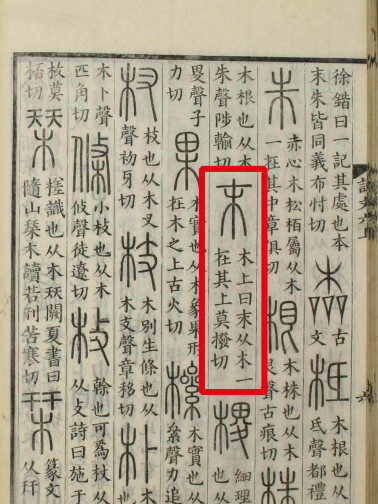 徐鍇曰一記其處也本
末朱皆同義布忖切
古
文
柢
木根也从木
氐聲都禮
朱
赤心木松柏屬从木
一在其中章俱切
根
木株也从木
艮聲古痕切
株
木根也从木
朱聲陟輸切
末
木上曰末从木一
在其上莫撥切
㮨
細理
畟聲子
力切
果
木實也从木象果形
在木之上古火切
樏
木實也从木
絫聲力追
杈
枝也从木叉
聲初牙切
枝
木別生條也从
木支聲章移切
朴
木卜聲
匹角切
條
小枝也从木
攸聲徒遼切
枚
榦也可爲杖从木
从攴詩曰施于
枚莫
桮切
槎識也从木㓞闕夏書曰
隨山栞木讀若刊苦寒切
栞
篆文
从幵